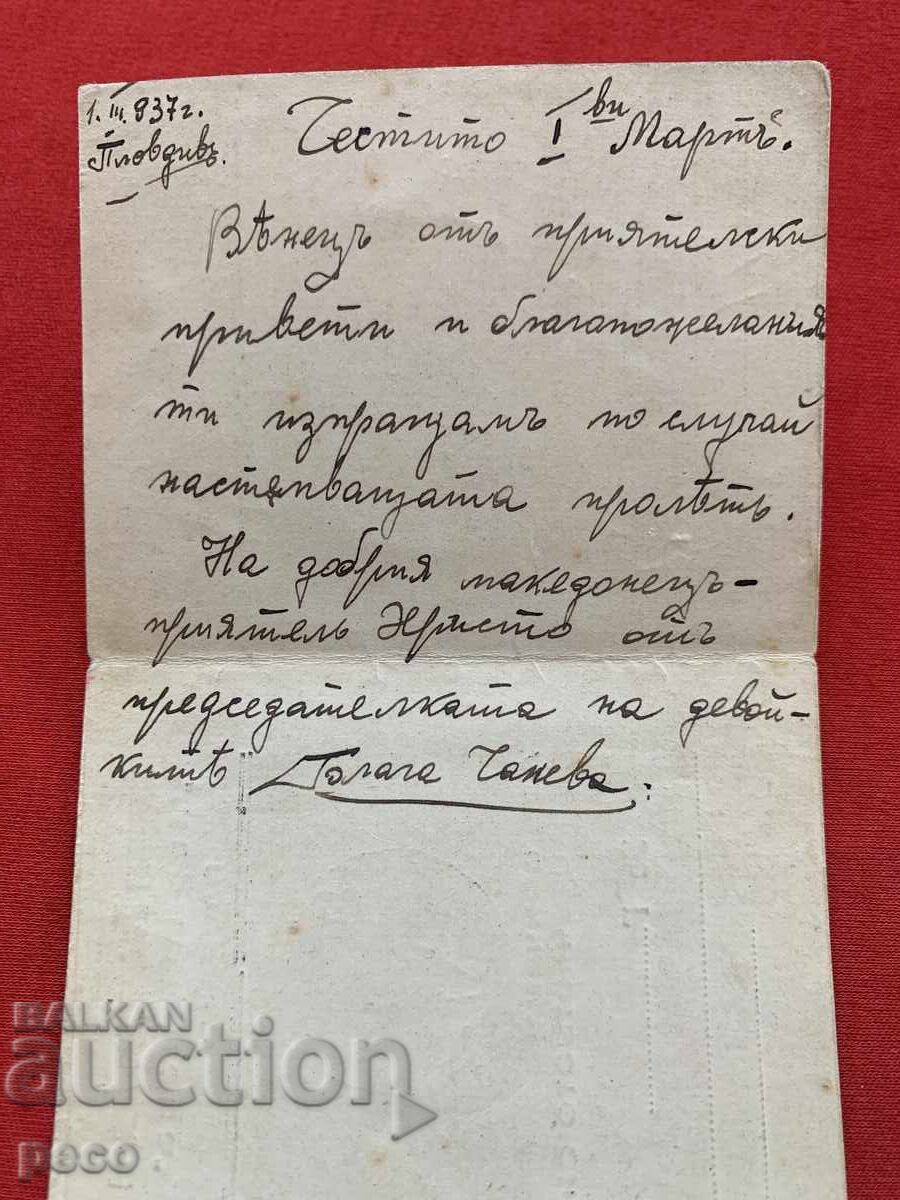 1. III. 937 г.
Пловдивъ.
Честито I ви Мартъ.
Вѣнецъ отъ приятелски
привети и благопожелания
ти изпращамъ по случай
настѫпващата пролѣть.
На добрия македонецъ-
приятель Христо отъ
председателката на девой-
китѣ Чанева.
BALKAN
auction
peco